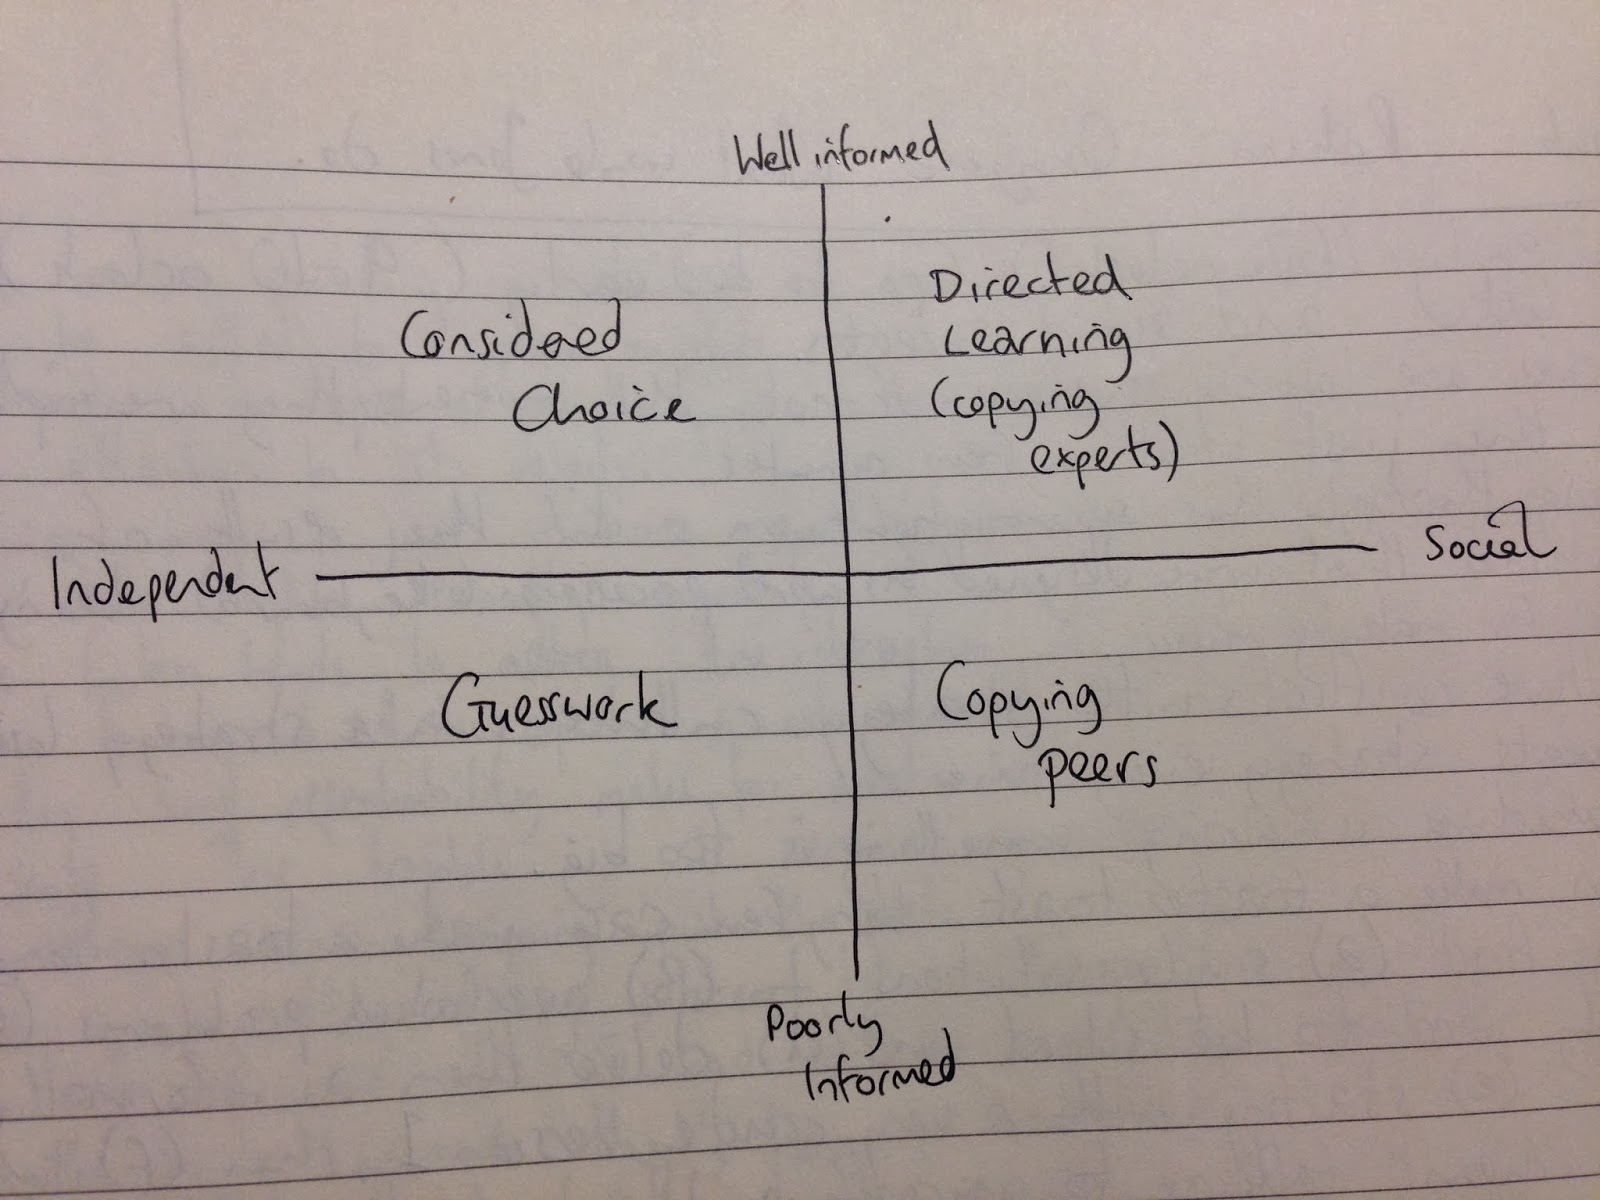 Well informed
Directed
Considered
Learning
Choice
(copying
experts)
Independent
Social
Guesswork
Copying
peers
Poorly
Informed